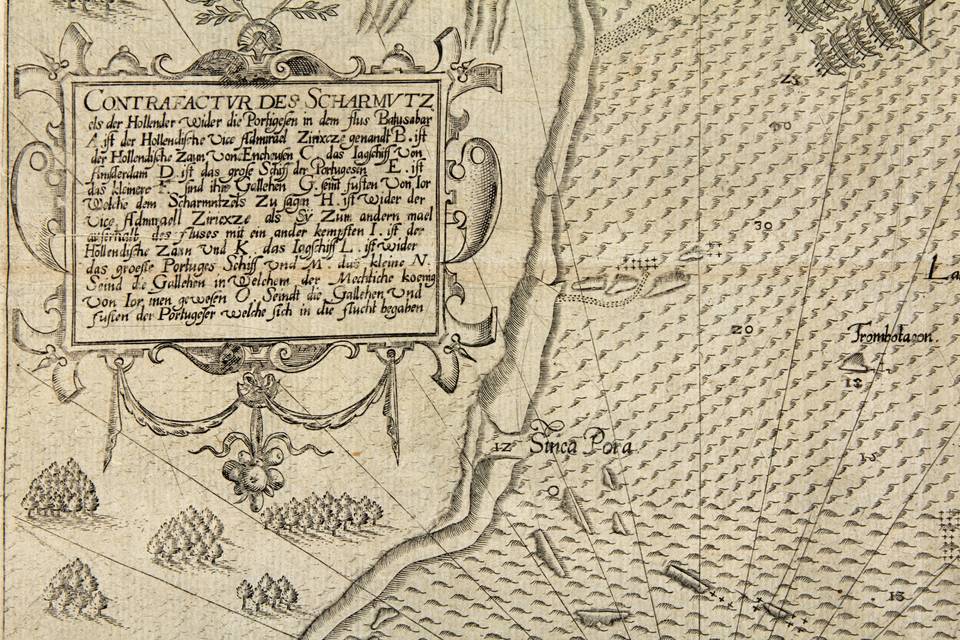 CONTRAFACTVR DES SCHARMVTZ
els der Hollender wider die Portigesen in dem flus Batusabar
A. ist der Hollendische vice Admirael Zirixcze genandt B. ist
der Hollendische Zaun von Enchousen C. das Iagschiff von
Amsterdam D. ist das grose Schiff der Portugesen E. ist
das kleinere F. sind ihre Gallehen G. seint fusten von Ior
welche dem Scharmutzels Zu sagin H. ist wider der
vice. Admiraell Ziricxze als Sy Zum andern mael
auserhalb des fluses mit ein ander kempften I. ist der
Hollendische Zaun und K. das Iagschiff L. ist wider
das groeste Portuges Schiff und M. das kleine N.
Seind die Gallehen in welchem der Mechtiche koenig
von Ior inen gewesen O. Seindt die Gallehen und
fusten der Portugeser welche sich in die flucht begaben
23
30
La
20
Trombotaoon.
18
12 Sinca Pora
15
O
13